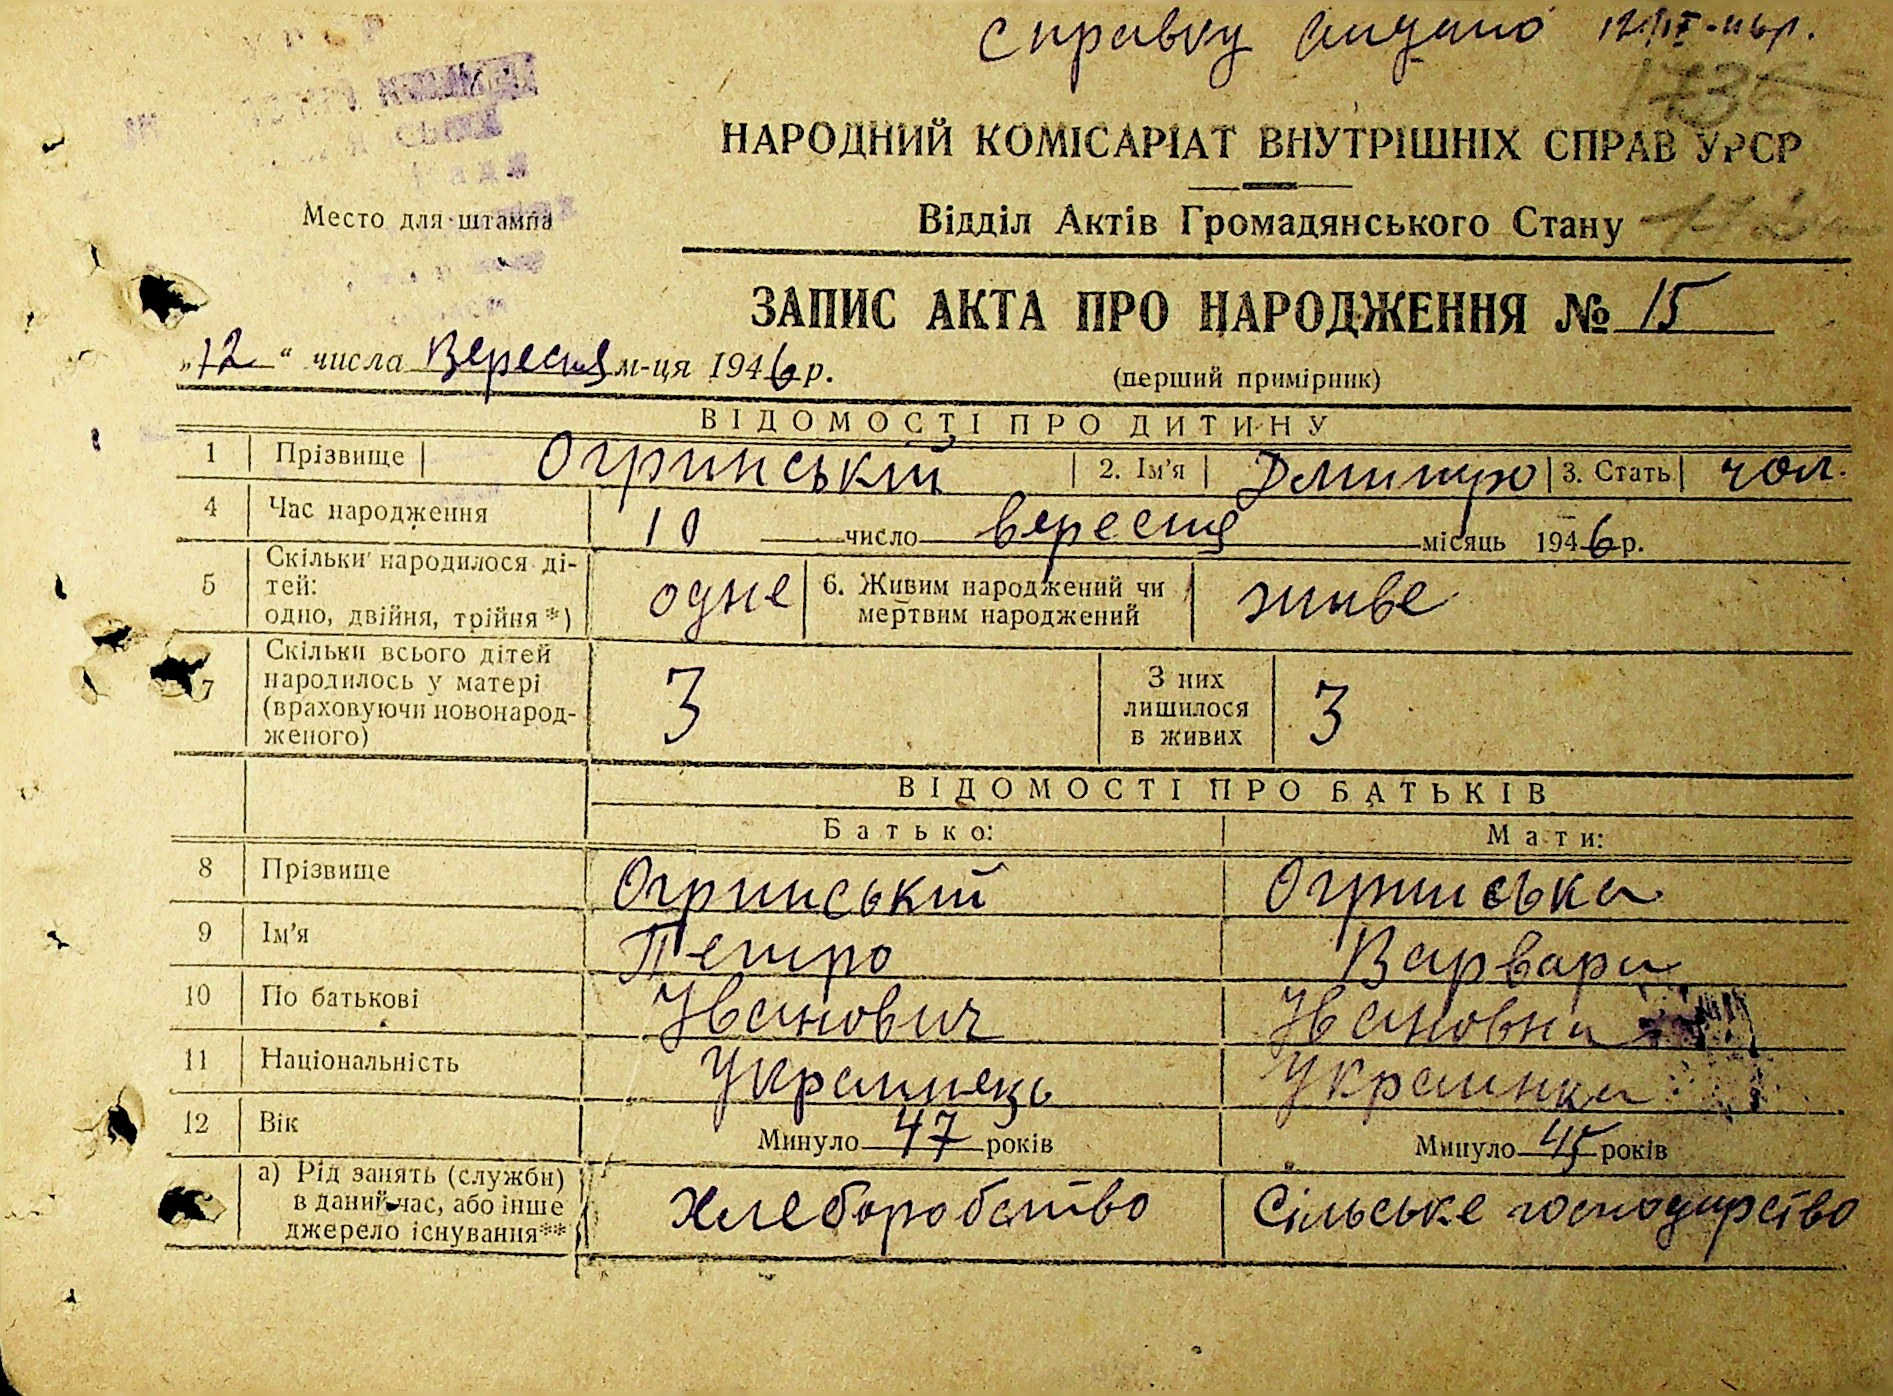 Справку видано 12/IX-46р.
1736
НАРОДНИЙ КОМІСАРІАТ ВНУТРІШНІХ СПРАВ УРСР
Место для штампа
Відділ Актів Громадянського Стану
ЗАПИС АКТА ПРО НАРОДЖЕННЯ № 15
„12“ числа Вересня м-ця 1946 р.
(перший примірник)
ВІДОМОСТІ ПРО ДИТИНУ
1 Прізвище Огринський 2. Ім'я Дмитро 3. Стать чол.
4 Час народження 10 число вересня місяць 1946 р.
5 Скільки народилося ді-
тей:
одно, двійня, трійня*) одне 6. Живим народжений чи
мертвим народжений живе
7 Скільки всього дітей
народилось у матері
(враховуючи новонарод-
женого) 3 З них
лишилося
в живих 3
ВІДОМОСТІ ПРО БАТЬКІВ
Батько: Мати:
8 Прізвище Огринський Огринська
9 Ім'я Петро Варвара
10 По батькові Іванович Івановна
11 Національність Українець Українка
12 Вік Минуло 47 років Минуло 45 років
а) Рід занять (служби)
в даний час, або інше
джерело існування** Хлеборобство Сільське господарство